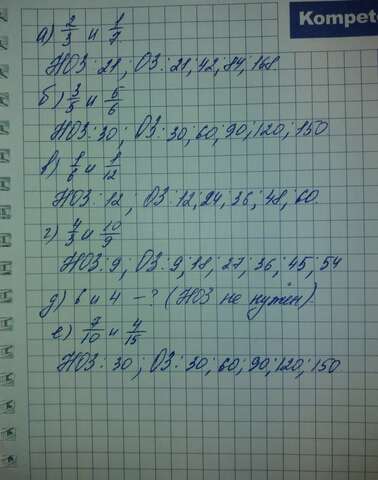 Kompete
а) 2/3 и 1/7
НОЗ: 21; ОЗ: 21, 42, 84, 168
б) 3/5 и 5/6
НОЗ: 30; ОЗ: 30; 60; 90; 120; 150
в) 1/6 и 1/12
НОЗ: 12; ОЗ: 12; 24; 36; 48; 60
г) 4/3 и 10/9
НОЗ: 9; ОЗ: 9; 18; 27; 36; 45; 54
д) 6 и 4 - ? (НОЗ не нужен)
е) 7/10 и 4/15
НОЗ: 30; ОЗ: 30; 60; 90; 120; 150